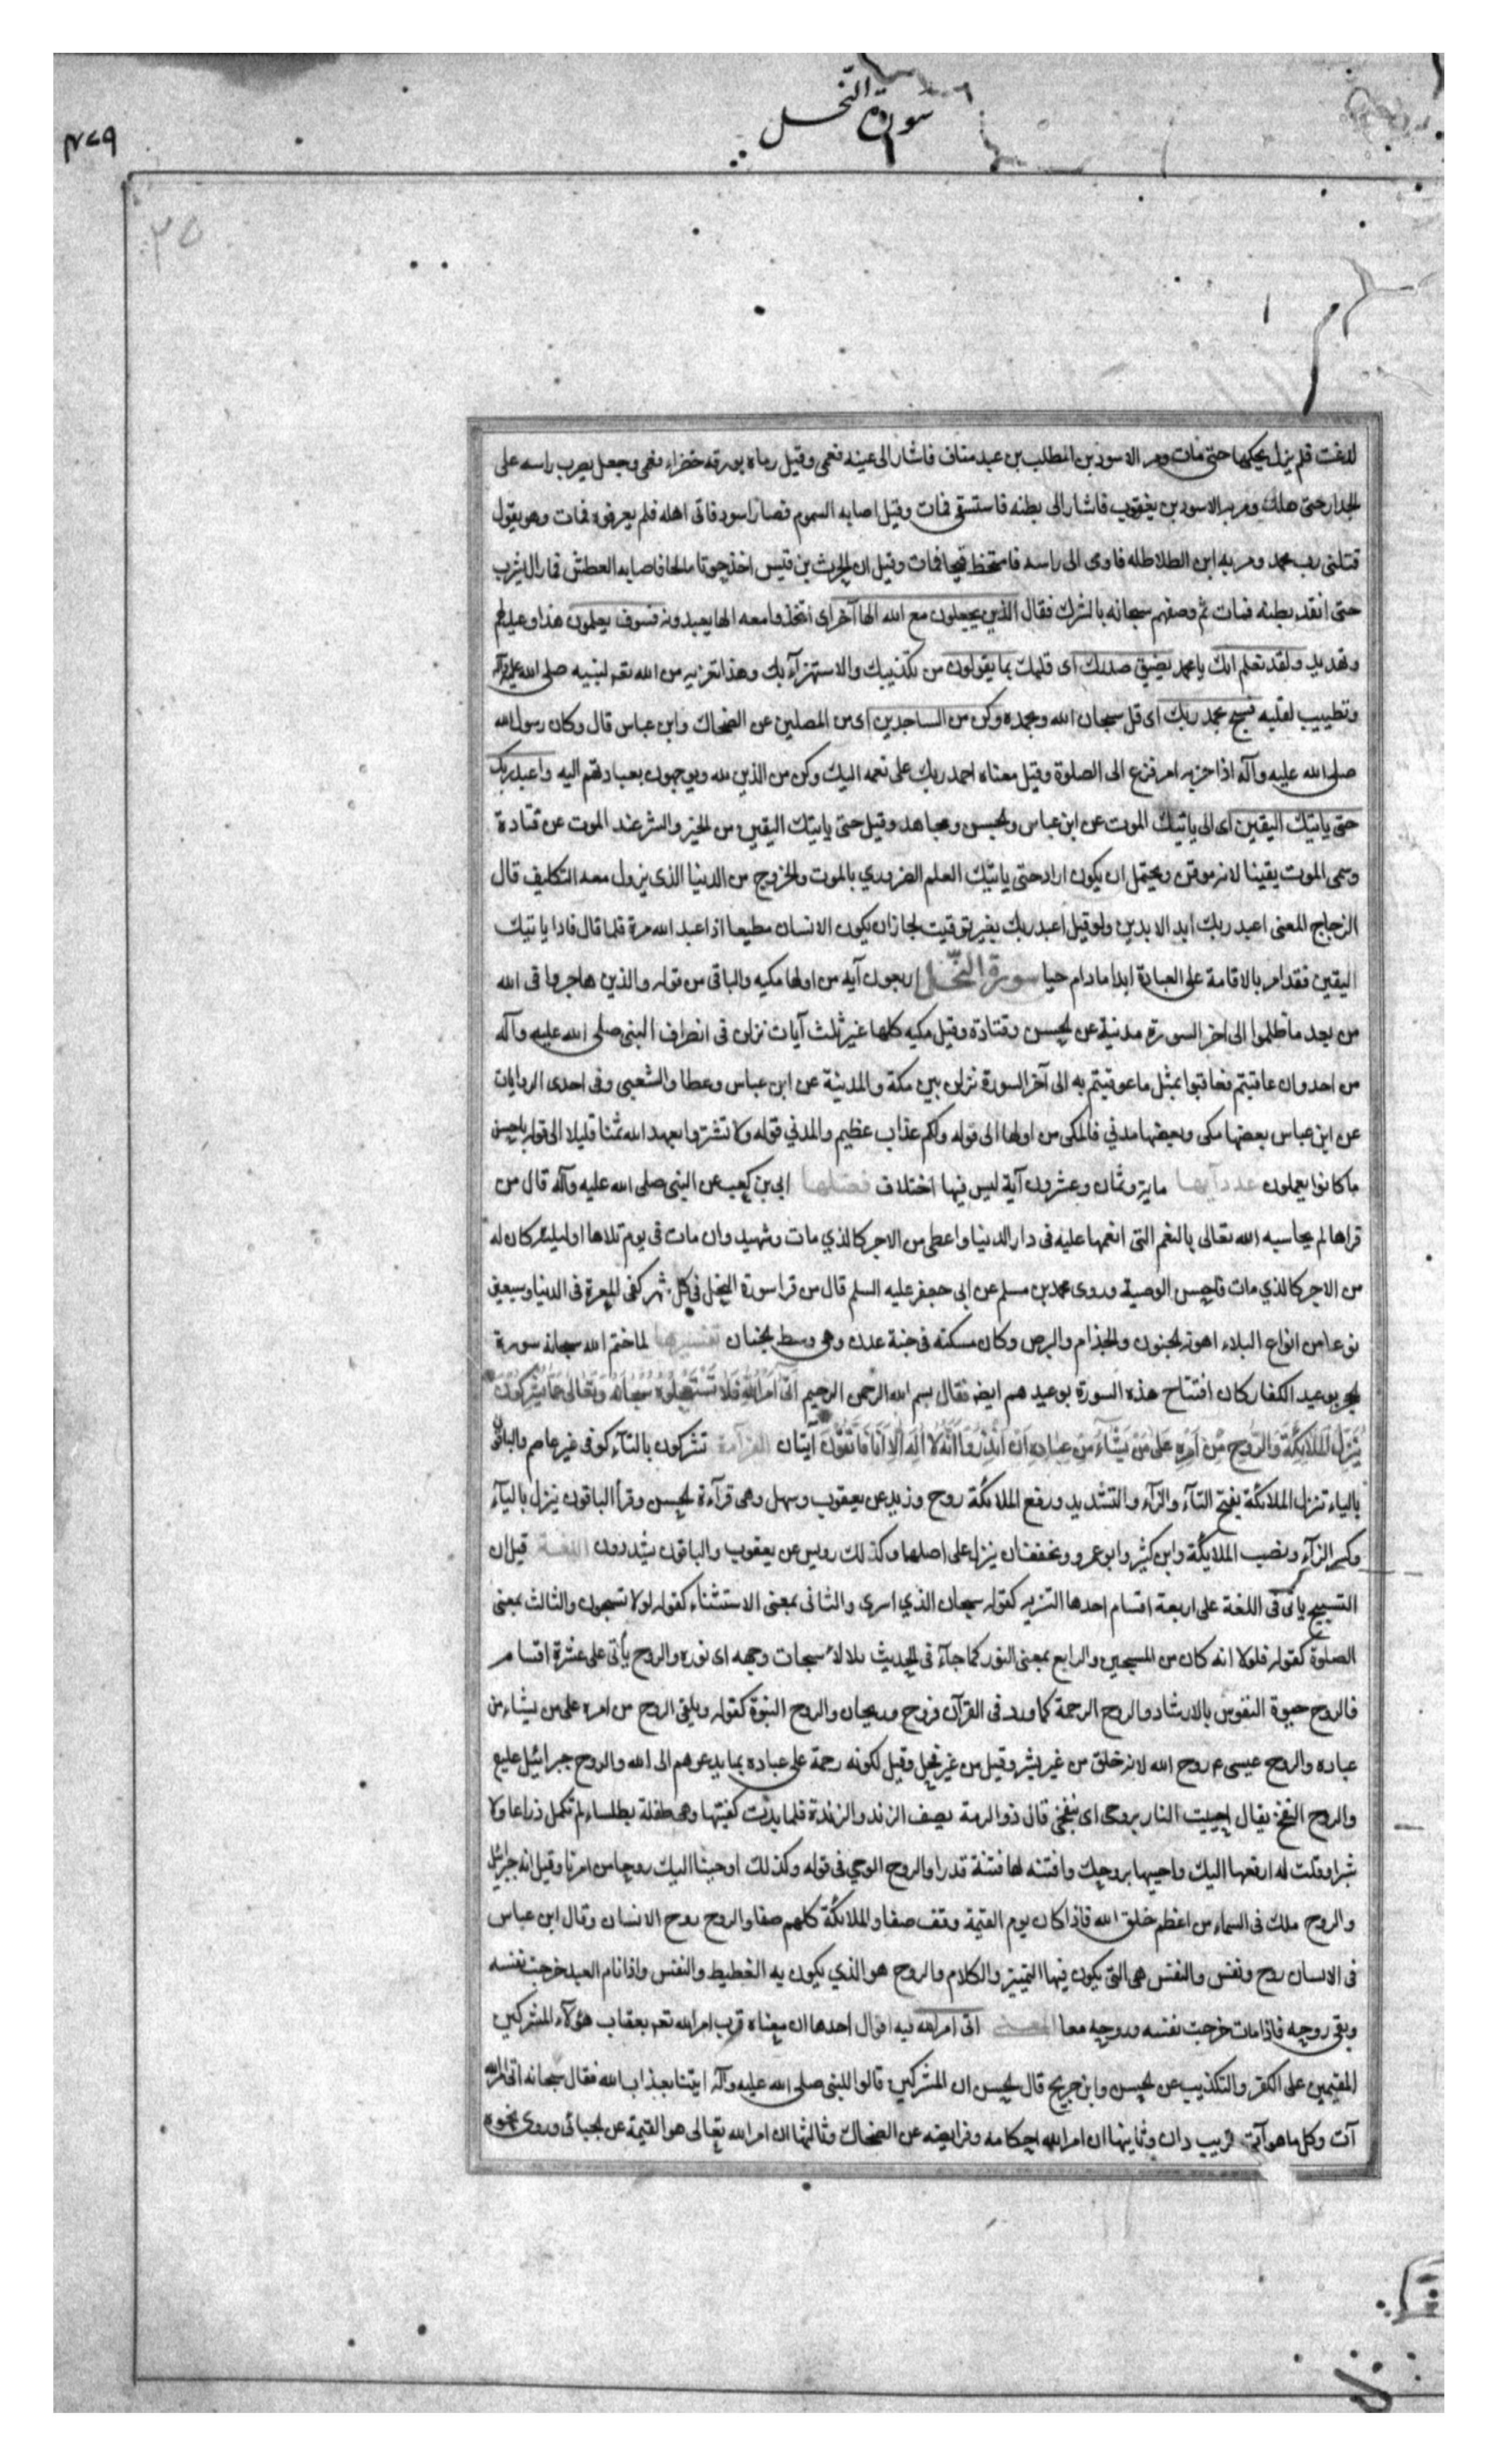 سورة النحل
٤٧٩
٢٥
لدغت فلم يزل يحكها حتى مات ومر الاسود بن المطلب بن عبد مناف فاشار الى عينه فعمى وقيل رماه بورقه خضراء فعمى وجعل يضرب راسه على
الجدار حتى هلك ومر به الاسود بن يغوث فاشار الى بطنه فاستسقى فمات وقيل اصابه السموم فصار اسود فاتى اهله فلم يعرفوه فمات وهو يقول
قتلنى رب محمد ومر به ابن الطلاطله فاومى الى راسه فامتخط قيحا فمات وقيل ان الحرث بن قيس اخذ حوتا مالحا فاصابه العطش فما زال يشرب
حتى انقد بطنه فمات ثم وصفهم سبحانه بالشرك فقال الذين يجعلون مع الله الها آخر اى اتخذوا معه الها يعبدونه فسوف يعلمون هذا وعيد لهم
وتهديد ولقد نعلم انك يا محمد يضيق صدرك اى قلبك بما يقولون من تكذيبك والاستهزآء بك وهذا تعزيه من الله تعـ لنبيه صلى الله عليه وآله
وتطييب لقلبه فسبح بحمد ربك اى قل سبحان الله وبحمده وكن من الساجدين اى من المصلين عن الضحاك وابن عباس قال وكان رسول الله
صلى الله عليه وآله اذا حزبه امر فزع الى الصلوة وقيل معناه احمد ربك على نعمه اليك وكن من الذين لله ويوجهون بعبادتهم اليه واعبد ربك
حتى ياتيك اليقين اى الى ياتيك الموت عن ابن عباس والحسن ومجاهد وقيل حتى ياتيك اليقين من الخير والشر عند الموت عن قتادة
وسمى الموت يقينا لانه موقن ويحتمل ان يكون اراد حتى ياتيك العلم الضروري بالموت والخروج من الدنيا الذى يزول معه التكليف قال
الزجاج المعنى اعبد ربك ابد الابدين ولو قيل اعبد ربك بغير توقيت لجاز ان يكون الانسان مطيعا اذا عبد الله مرة فلما قال فاذا ياتيك
اليقين فقد امر بالاقامة على العبادة ابدا مادام حيا سورة النحل اربعون آية من اولها مكيه والباقى من قوله والذين هاجروا فى الله
من بعد ما ظلموا الى اخر السورة مدنية عن الحسن وقتادة وقيل مكيه كلها غير ثلث آيات نزلن فى انصراف النبى صلى الله عليه وآله
من احد وان عاقبتم فعاقبوا بمثل ما عوقبتم به الى آخر السورة نزلن بين مكة والمدينة عن ابن عباس وعطا والشعبى وفى احدى الروايات
عن ابن عباس بعضها مكى وبعضها مدني فالمكى من اولها الى قوله ولكم عذاب عظيم والمدني قوله ولا تشتروا بعهد الله ثمنا قليلا الى قوله باحسن
ما كانوا يعملون عدد آيها ماية وثمان وعشرون آية ليس فيها اختلاف فضلها ابى بن كعب عن النبى صلى الله عليه وآله قال من
قراها لم يحاسبه الله تعالى بالنعم التى انعمها عليه فى دار الدنيا واعطى من الاجر كالذي مات وشهيد وان مات فى يوم تلاها او ليلته كان له
من الاجر كالذي مات فاحسن الوصية وروى محمد بن مسلم عن ابى جعفر عليه السلم قال من قرا سورة النحل فى كل شهر كفى المعرة فى الدنيا وسبعين
نوعا من انواع البلاء اهونه الجنون والجذام والبرص وكان مسكنه فى جنة عدن وهى وسط الجنان تفسيرها لما ختم الله سبحانه سورة
الحجر بوعيد الكفار كان افتتاح هذه السورة بوعيدهم ايضـ فقال بسم الله الرحمن الرحيم اَتَى اَمْرُ اللهِ فَلَا تَسْتَعْجِلُوهُ سُبْحَانَهُ وَتَعَالَى عَمَّا يُشْرِكُونَ
يُنَزِّلُ الْمَلَائِكَةَ وَالرُّوحَ مِنْ اَمْرِهِ عَلَى مَنْ يَشَآءُ مِنْ عِبَادِهِ اَنْ اَنْذِرُوا اَنَّهُ لَا اِلَهَ اِلَّا اَنَا فَاتَّقُونِ آيتان القرآءة تشركون بالتآء كوفى غير عاصم والباقون
بالياء تنزل الملائكة بفتح التآء والزآء والتشديد ورفع الملائكة روح وزيد عن يعقوب وسهل وهى قرآءة الحسن وقرأ الباقون ينزل باليآء
وكسر الزآء ونصب الملايكة وابن كثير وابو عمرو ويخففان ينزل على اصلها وكذلك رويس عن يعقوب والباقون يشددون اللغة قيل ان
التسبيح ياتى فى اللغة على اربعة اقسام احدها التنزيه كقوله سبحان الذي اسرى والثانى بمعنى الاستثناء كقوله لولا تسبحون والثالث بمعنى
الصلوة كقوله فلولا انه كان من المسبحين والرابع بمعنى النور كما جآء فى الحديث سبحات وجهه اى نوره والروح يأتى على عشرة اقسام
فالروح حيوة النفوس بالارشاد والروح الرحمة كما ورد فى القرآن فروح وريحان والروح النبوة كقوله ويلقى الروح من امره على من يشاء من
عباده والروح عيسى ع روح الله لانه خلق من غير بشر وقيل من غير فحل وقيل لكونه رحمة على عباده بما يدعوهم الى الله والروح جبرائيل عليع
والروح النفخ يقال احييت النار بروحى اى بنفخى قال ذو الرمة يصف الزند والزندة فلما بدت كفنتها وهى طفلة بطلساء لم تكمل ذراعا ولا
شبرا وقلت له ارفعها اليك واحيها بروحك وافتنه لها فتنة قدرا والروح الوحي فى قوله وكذلك اوحينا اليك روحا من امرنا وقيل انه جبرائيل
والروح ملك فى السماء من اعظم خلق الله فاذا كان يوم القيمة وقف صفا والملائكة كلهم صفا والروح روح الانسان وقال ابن عباس
فى الانسان روح ونفس والنفس هى التى يكون فيها التمييز والكلام والروح هو الذي يكون به الغطيط والنفس واذا نام العبد خرجت نفسه
وبقى روحه فاذا مات خرجت نفسه وروحه معا المعنى اتى امر الله فيه اقوال احدها ان معناه قرب امر الله تعـ بعقاب هؤلآء المشركين
المقيمين على الكفر والتكذيب عن الحسن وابن جريح قال الحسن ان المشركين قالوا للنبى صلى الله عليه وآله ايتنا بعذاب الله فقال سبحانه اتى امر الله
آت وكل ما هو آت قريب دان وثانيها ان امر الله احكامه وفرايضه عن الضحاك وثالثها ان امر الله تعالى هو القيمة عن الجبائى وروى نحوه